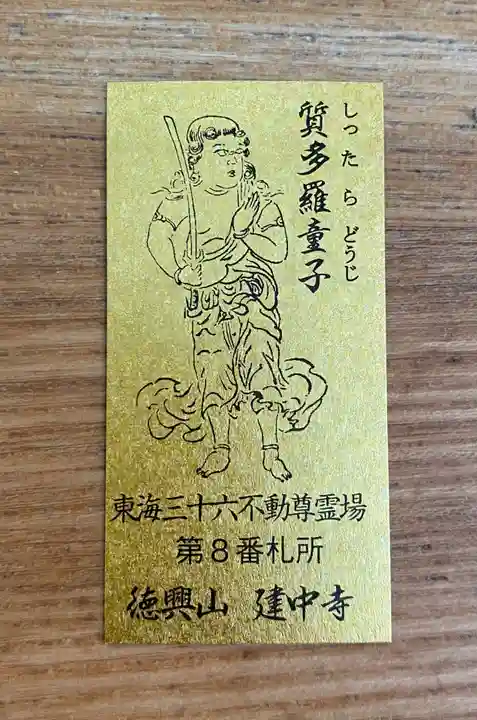 質多羅童子
しったらどうじ
東海三十六不動尊霊場
第8番札所
徳興山 建中寺